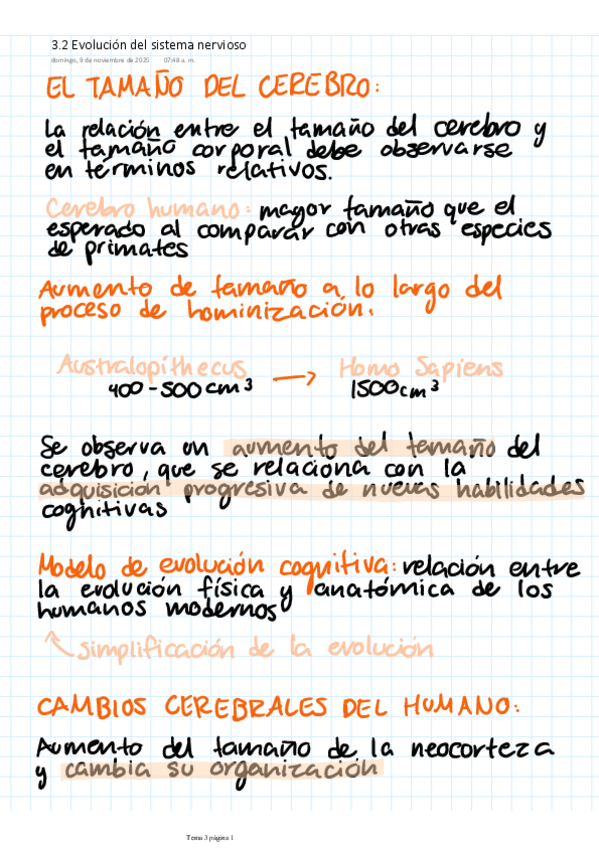 3.2 Evolución del sistema nervioso
domingo, 9 de noviembre de 2025 07:48 a. m.
EL TAMAÑO DEL CEREBRO:
La relación entre el tamaño del cerebro y
el tamaño corporal debe observarse
en términos relativos.
Cerebro humano: mayor tamaño que el
esperado al comparar con otras especies
de primates
Aumento de tamaño a lo largo del
proceso de hominización:
Australopithecus → Homo Sapiens
400-500cm³ 1500cm³
Se observa un aumento del tamaño del
cerebro, que se relaciona con la
adquisición progresiva de nuevas habilidades
cognitivas
Modelo de evolución cognitiva: relación entre
la evolución física y anatómica de los
humanos modernos
simplificación de la evolución
CAMBIOS CEREBRALES DEL HUMANO:
Aumento del tamaño de la neocorteza
y cambia su organización
Tema 3 página 1